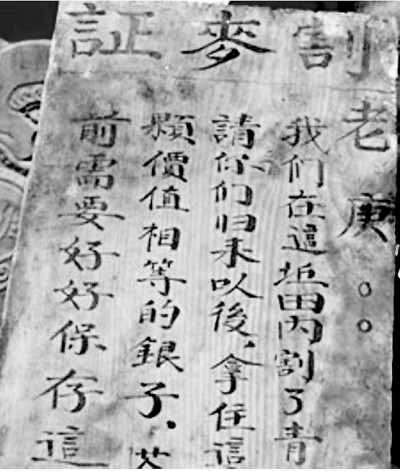 割麥証
老庚。。
我们在這坵田內割了青
請你们归来以後，拿住這
顆價值相等的銀子，
前需要好好保存這